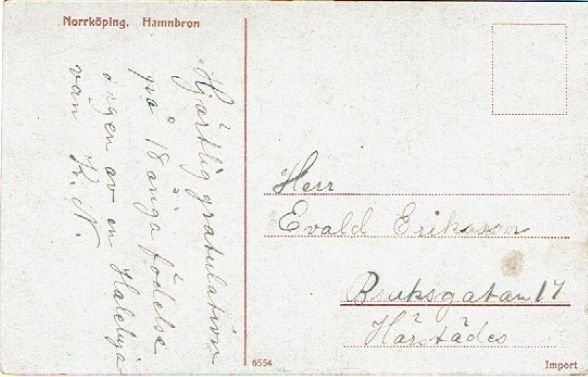 Norrköping. Hamnbron
Hjärtlig gratulation
på 18 åriga födelse
av en
vän K. N.
Herr
Evald Eriksson
Bruksgatan 17
Härstädes
6554
Import